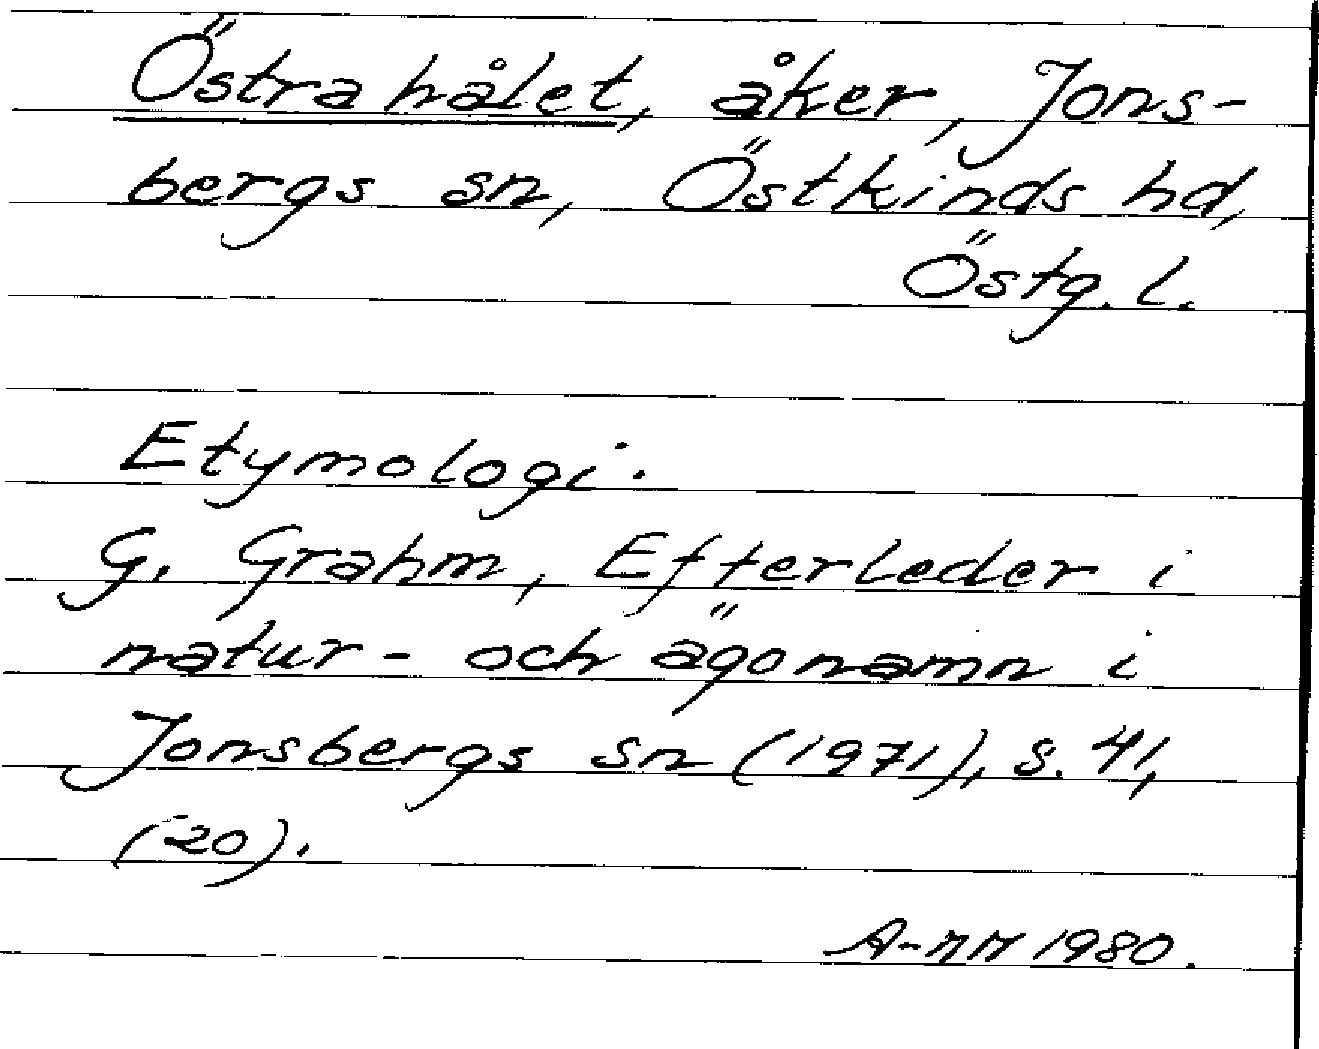 Östra hålet, åker, Jons-
bergs sn, Östkinds hd,
Östg. l.
Etymologi.
G. Grahm, Efterleder i
natur- och ägonamn i
Jonsbergs sn (1971), s. 41,
(20).
A-MM 1980.